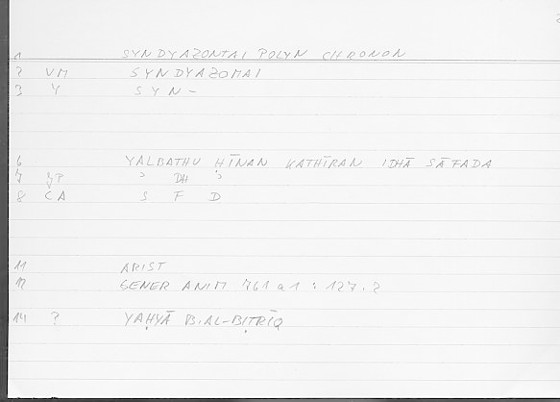 1 SYNDYAZONTAI POLYN CHRONON
2 VM SYNDYAZOMAI
3 Y SYN-
6 YALBATHU ḤĪNAN KATHĪRAN IDHĀ SĀFADA
7 ʾ DH ʾ
8 CA S F D
11 ARIST
12 GENER ANIM 761 a 1 : 127.2
14 ? YAḤYĀ B.AL-BIṬRĪQ